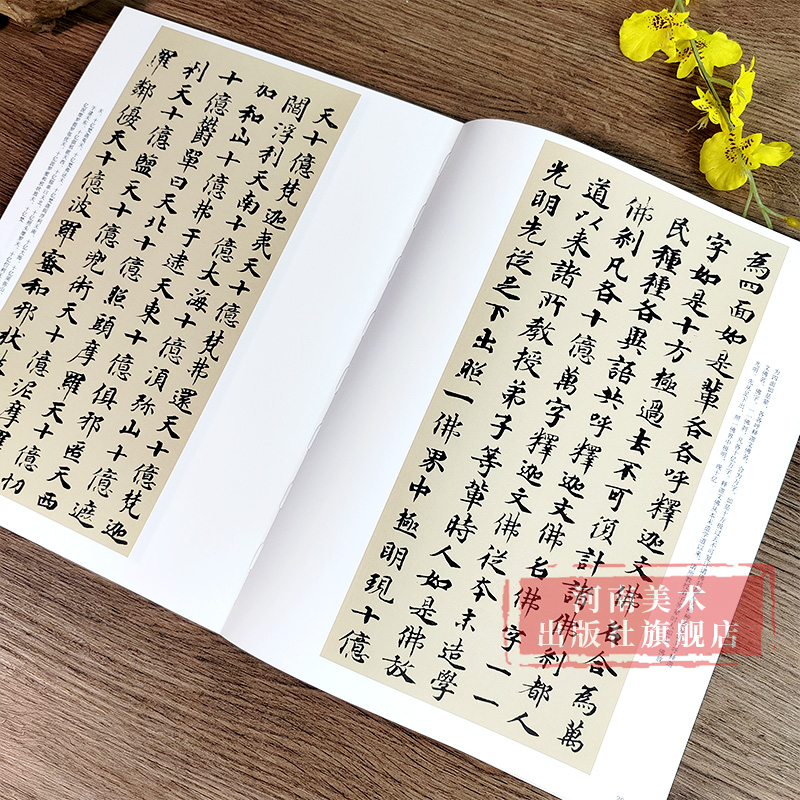 為四面如是輩各各呼釋迦文佛名合為萬
字如是十方極過去不可復計諸佛剎都人
民種種各異語共呼釋迦文佛名佛字一一
佛剎凡各十億萬字釋迦文佛從本末造學
道以來諸所教授弟子等輩時人如是佛放
光明先從足下出照一佛界中極明現十億
天十億梵迦夷天十億梵弗還天十億梵迦
閻浮利天南十億大海十億須弥山十億遮
加和山十億弗于逮天東十億俱邪匿天西
十億欝單曰天北十億照頭摩羅天十億切
利天十億鹽天十億兜術天十億泥摩羅
羅鄰優天十億波羅蜜和邪
河南美术
出版社旗舰店